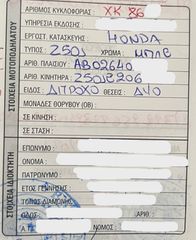 ΑΡΙΘΜΟΣ ΚΥΚΛΟΦΟΡΙΑΣ: ΧΚ 86
ΥΠΗΡΕΣΙΑ ΕΚΔΟΣΗΣ:
ΕΡΓΟΣΤ. ΚΑΤΑΣΚΕΥΗΣ: HONDA
ΤΥΠΟΣ: 250J ΧΡΩΜΑ: ΜΠΛΕ
ΑΡΙΘΜ. ΠΛΑΙΣΙΟΥ: AB02640
ΑΡΙΘ. ΚΙΝΗΤΗΡΑ: 250J2206
ΕΙΔΟΣ: ΔΙΤΡΟΧΟ ΘΕΣΕΙΣ: ΔΥΟ
ΜΟΝΑΔΕΣ ΘΟΡΥΒΟΥ (DB):
ΣΕ ΚΙΝΗΣΗ:
ΣΕ ΣΤΑΣΗ:
ΣΤΟΙΧΕΙΑ ΜΟΤΟΠΟΔΗΛΑΤΟΥ
ΕΠΩΝΥΜΟ:
ΟΝΟΜΑ:
ΠΑΤΡΩΝΥΜΟ:
ΕΤΟΣ ΓΕΝΝΗΣΗΣ:
ΤΟΠΟΣ ΔΙΑΜΟΝΗΣ:
ΟΔΟΣ: ΑΡΙΘ.:
ΝΟΜΟΣ:
ΣΤΟΙΧΕΙΑ ΙΔΙΟΚΤΗΤΗ